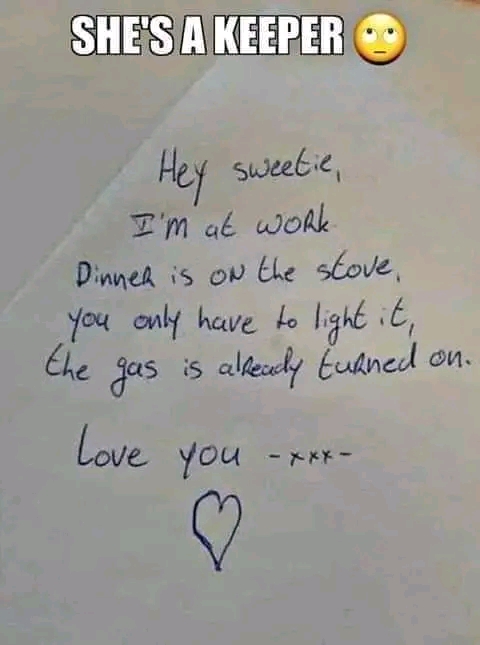 SHE'S A KEEPER 🙄
Hey sweetie,
I'm at work.
Dinner is on the stove,
you only have to light it,
the gas is already turned on.
Love you -xxx-